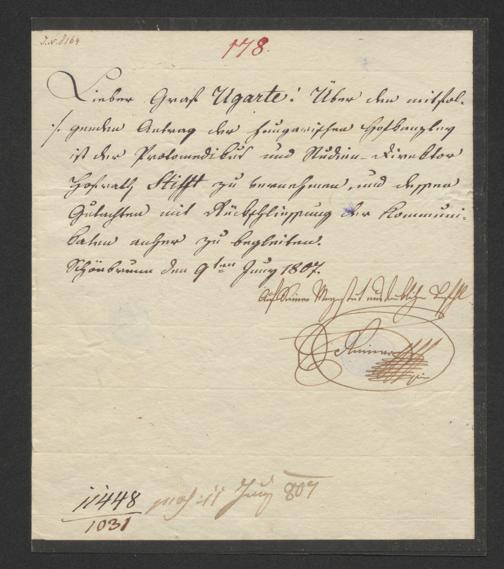 I.N. 8164
178.
Lieber Graf Ugarte! Über den mitfol-
./. genden Antrag der hungarischen Hofkanzley
ist der Protomedikus und Studien-Direktor
Hofrath Stifft zu vernehmen, und dessen
Gutachten mit Rückschliessung der Kommuni-
katen anher zu begleiten.
Schönbrunn den 9ten Juny 1807.
Auf Seiner Majestät Befehl
Rainer
11448
1031
11 Juny 807